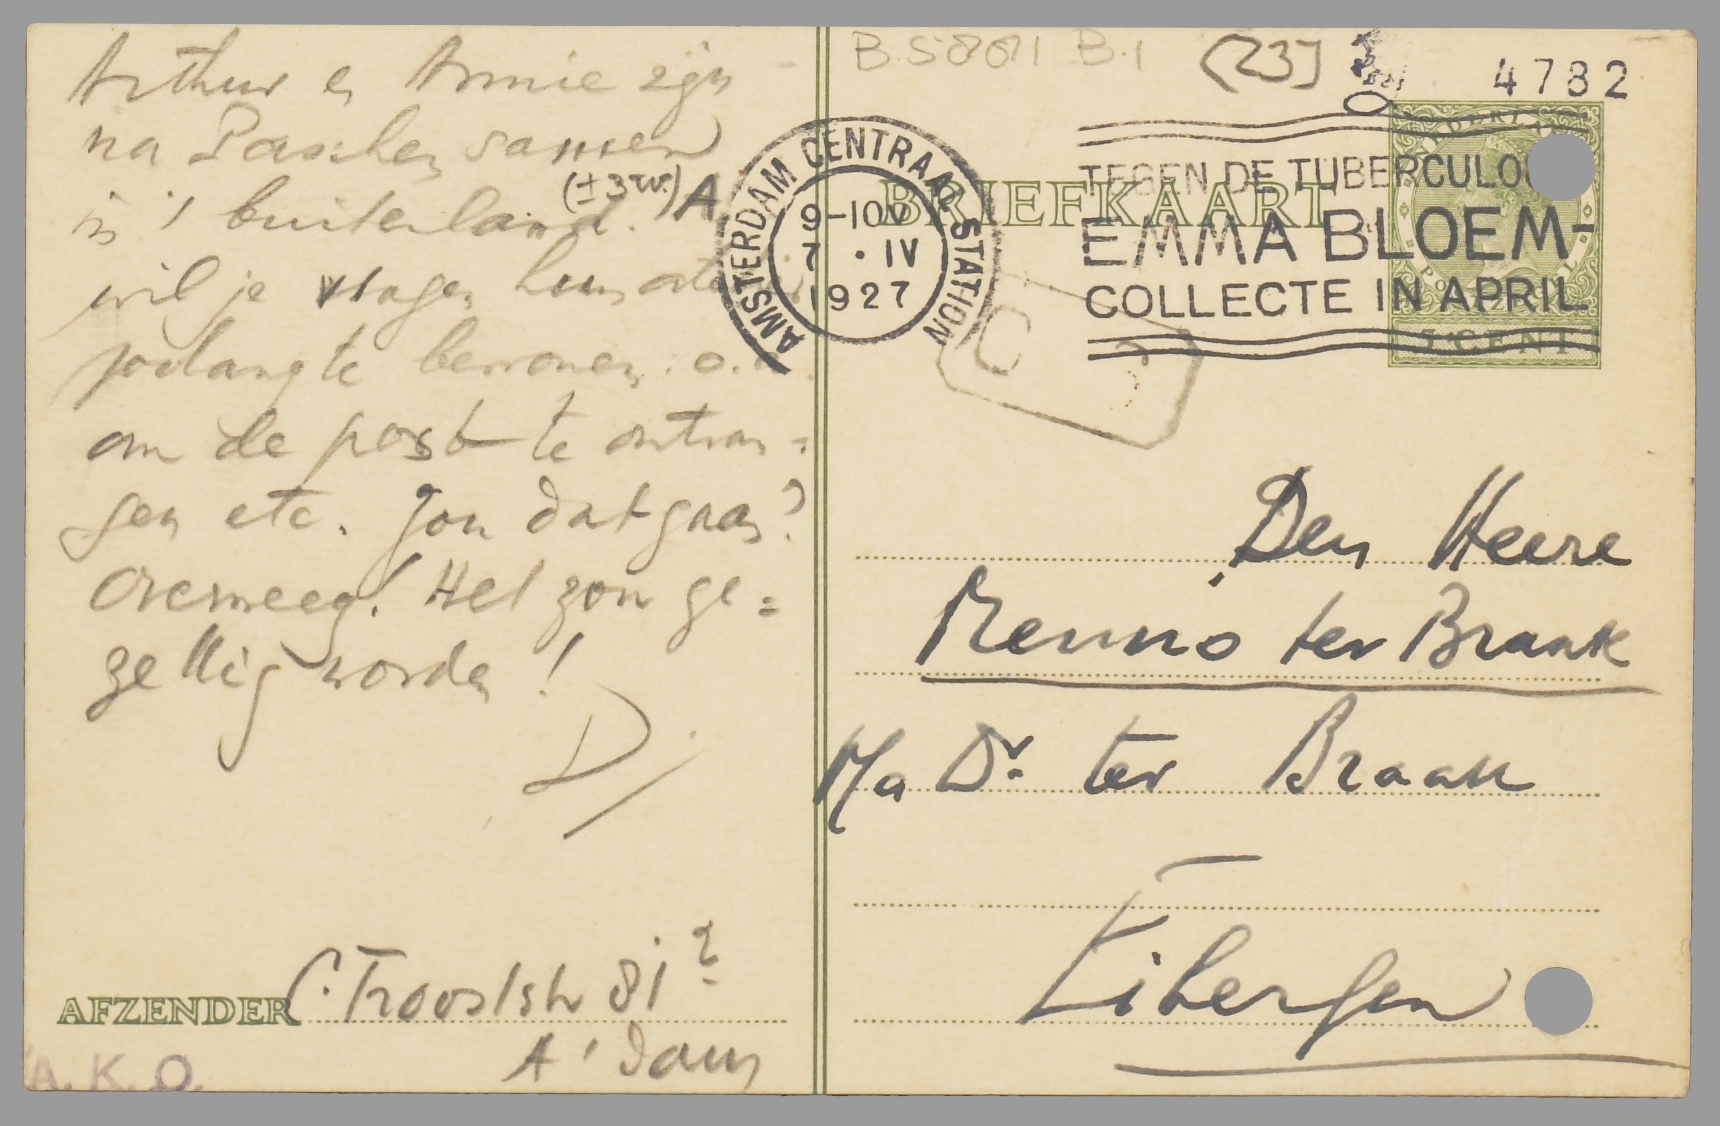 Arthur en Annie zijn
na Paschen samen
(±3 w.)
in 't buitenland. A.
wil je vragen hun
zoolang te bewonen. o.a.
om de post te ontvan=
gen etc. Zou dat gaan?
Overweeg! Het zou ge=
zellig worden!
D.
AFZENDER C. Trooststr 81 2
A'dam
A. K. O.
B.58011 B.1 (23] 4782
AMSTERDAM CENTRAAL STATION
9-10V
7 . IV
1927
TEGEN DE TUBERCULO
EMMA BLOEM-
COLLECTE IN APRIL.
BRIEFKAART
CENT
Den Heere
Menno ter Braak
Ma Dr. ter Braak
Eibergen